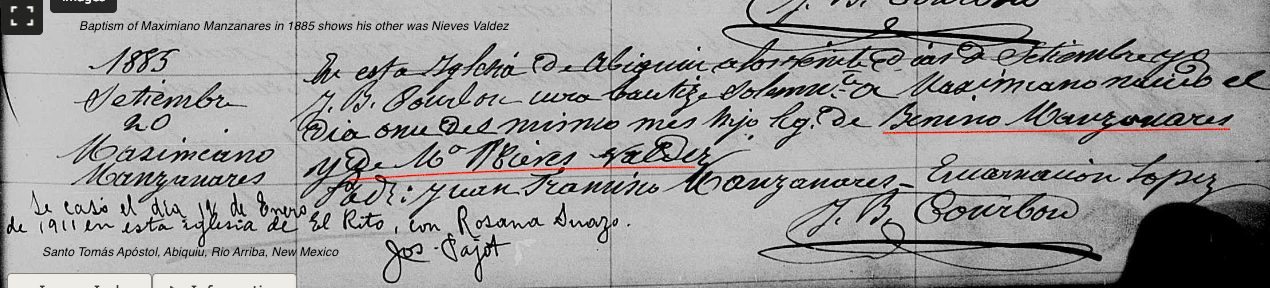 Images
J. B. Courbon
Baptism of Maximiano Manzanares in 1885 shows his other was Nieves Valdez
1885
Setiembre
20
Maximiano
Manzanares
En esta Iglesia de Abiquiu a los veinte dias de Setiembre yo
J. B. Courbon cura bautize solemn.te a Maximiano nacido el
dia once del mismo mes hijo leg. de Benino Manzanares
y de Ma Nieves Valdez
Padr: Juan Francisco Manzanares - Encarnacion Lopez
J. B. Courbon
Se casó el dia 12 de Enero
de 1911 en esta iglesia de El Rito, con Rosana Suazo.
Jos. Pajot
Santo Tomás Apóstol, Abiquiu, Rio Arriba, New Mexico